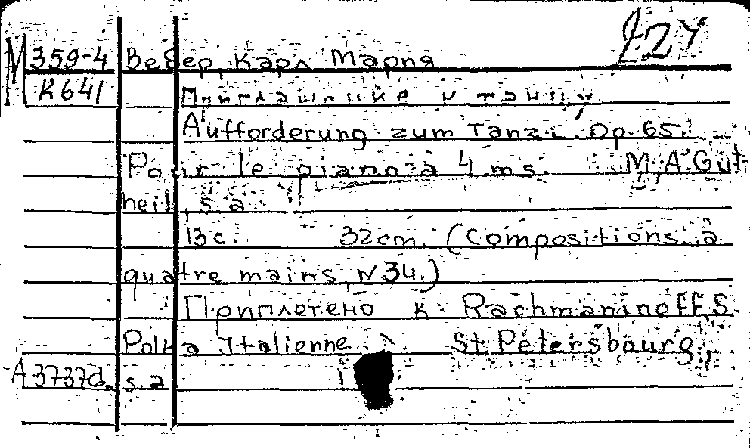 М 359-4 Вебер, Карл Мария
К641 Приглашение к танцу
Aufforderung zum Tanze. Op. 65.
Pour le piano à 4 ms. M., A. Gut
heil, s.a.
13 с. 32 cm. (Compositions à
quatre mains, N 34.)
Приплетено к: Rachmaninoff, S.
Polka Italienne. St. Petersbourg,
A3737d. s.a.